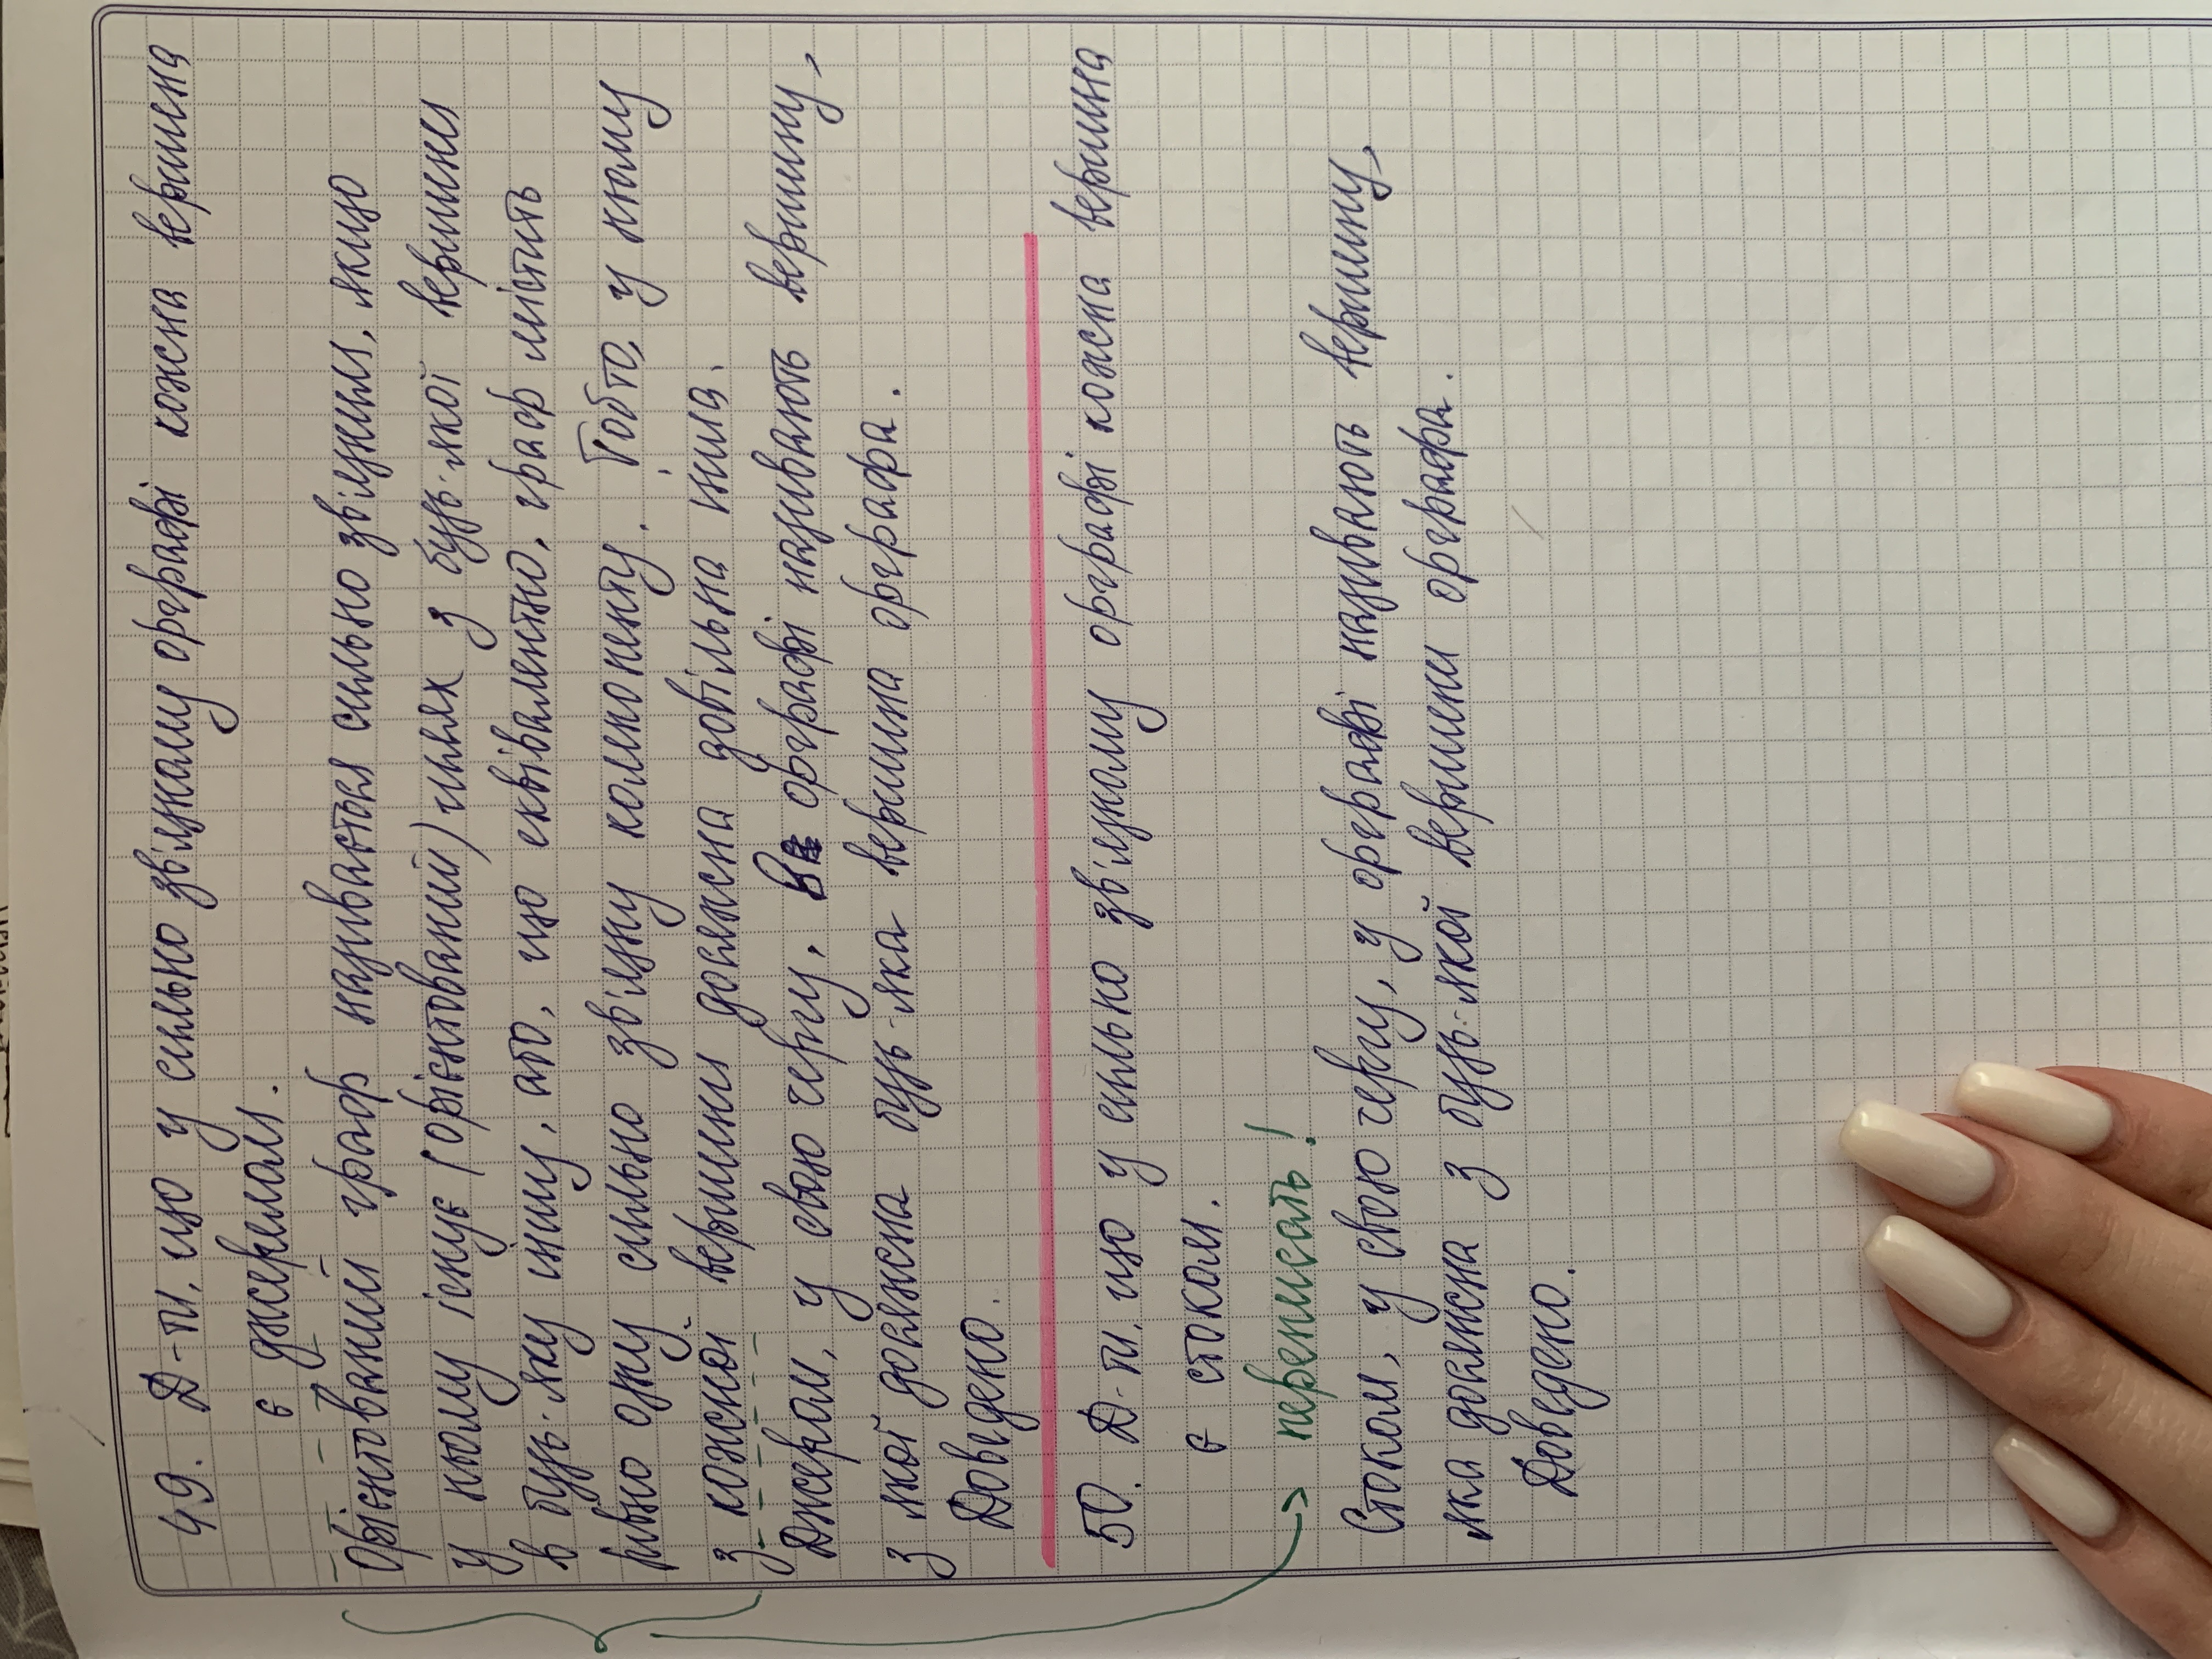 49. Д-ти, що у сильно зв'язному орграфі кожна вершина
є джерелом.
Орієнтований граф називається сильно зв'язним, якщо
у ньому існує (орієнтований) шлях з будь-якої вершини
в будь-яку іншу, або, що еквівалентно, граф містить
рівно одну сильно зв'язну компоненту. Тобто, у ньому
з кожної вершини досяжна довільна інша.
Джером, у свою чергу, в орграфі називають вершину,
з якої досяжна будь-яка вершина орграфа.
Доведено.
50. Д-ти, що у сильно зв'язному орграфі кожна вершина
є стоком.
переписать!
Стоком, у свою чергу, у орграфі називають вершину,
яка досяжна з будь-якої вершини орграфа.
Доведено.